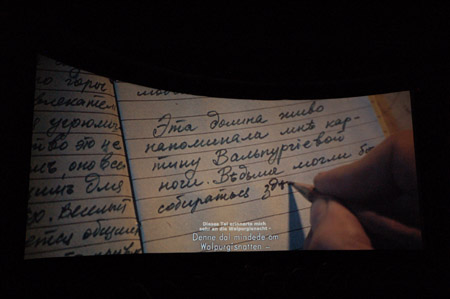 о горы
влекател
угрюмы
тво это не
мъ, оно все
шимъ для
Веселый
ется общим
Эта долина живо
напоминала мнѣ кар-
тину Вальпургіевой
ночи. Вѣдьмы могли
собираться здѣ
Dieses Tal erinnerte mich
sehr an die Walpurgisnacht -
Denne dal mindede om
Walpurgisnatten –